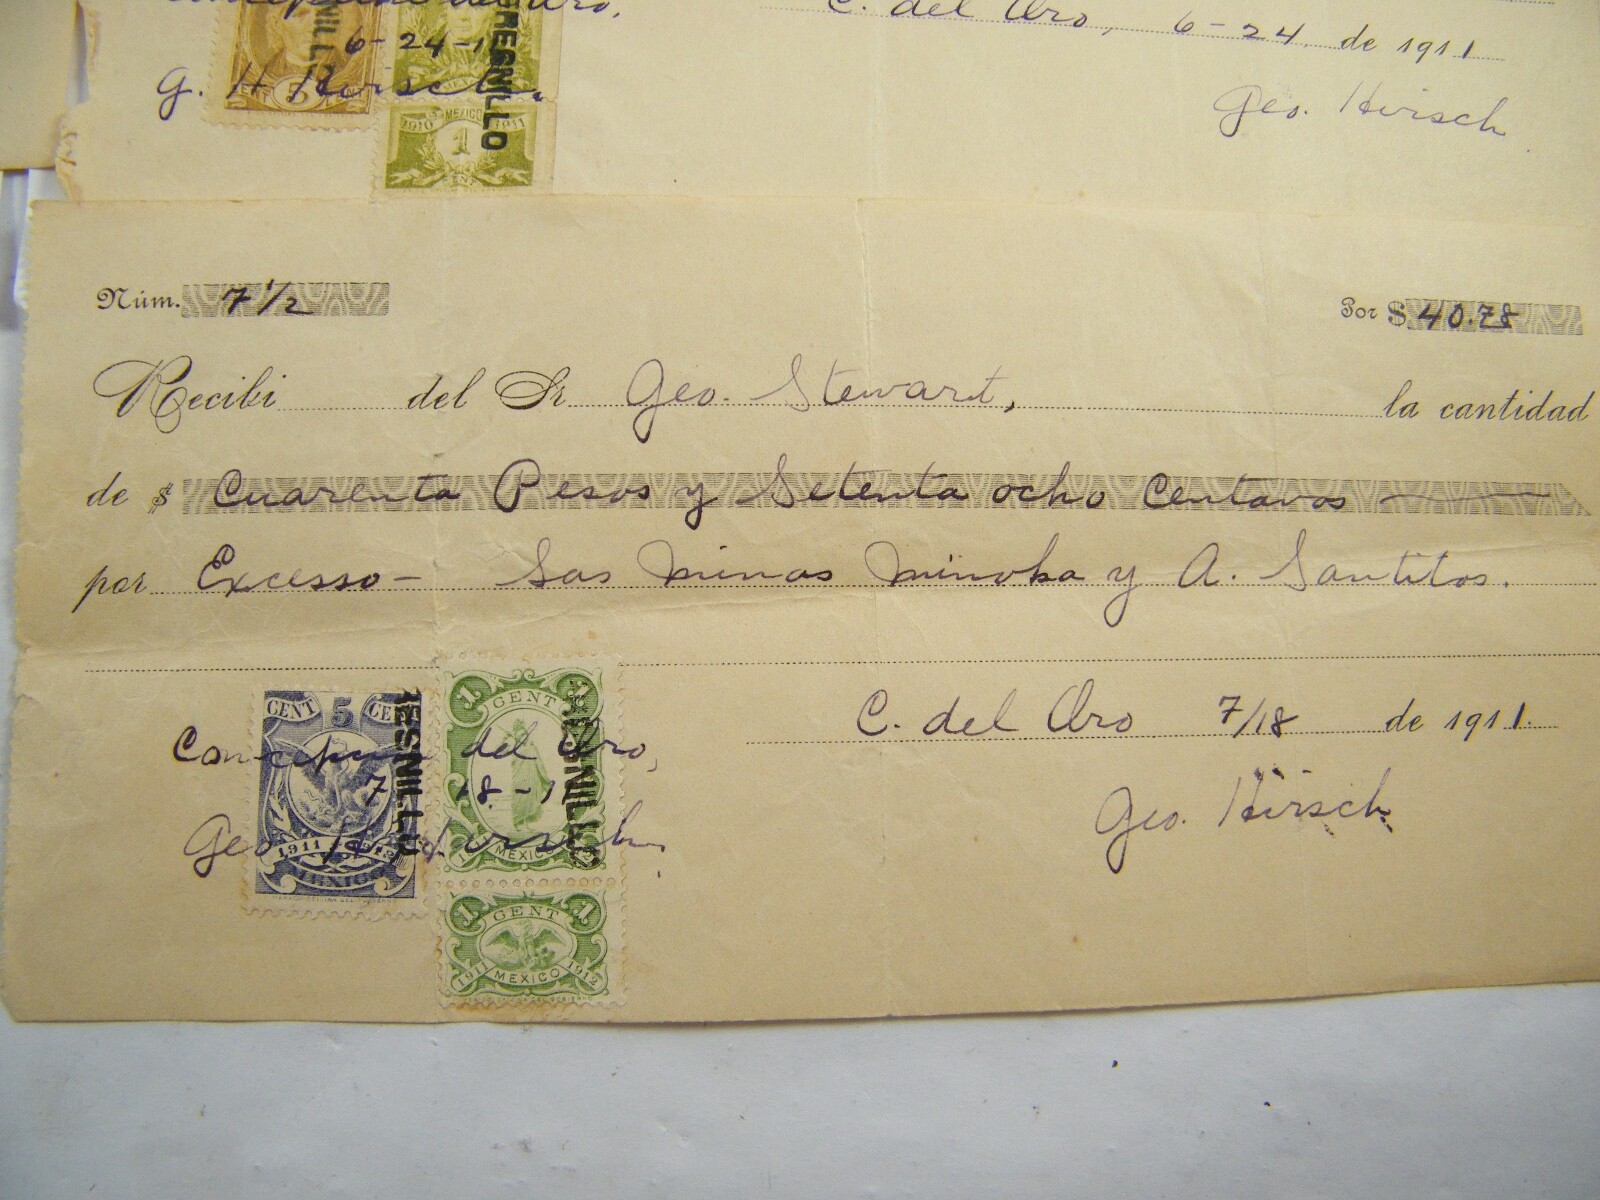 Concepcion del Oro,
6-24-1
G. H. Hirsch.
FRESNILLO
5
1910 MEXICO 1911
1
CENT
C. del Oro, 6-24. de 1911
Geo. Hirsch
Núm. 7 1/2
Por $ 40.78
Recibi del Sr Geo. Stewart, la cantidad
de $ Cuarenta Pesos y Setenta ocho Centavos
por Excesso - Las Minas Minoka y A. Santitos.
C. del Oro 7/18 de 1911.
Geo. Hirsch
CENT 5 CENT
Concepcion del Oro,
7 18-1
Geo. H. Hirsch.
RESNILLO
1911 1912
MEXICO
1 CENT 1
FRESNILLO
MEXICO
1 CENT 1
1911 MEXICO 1912